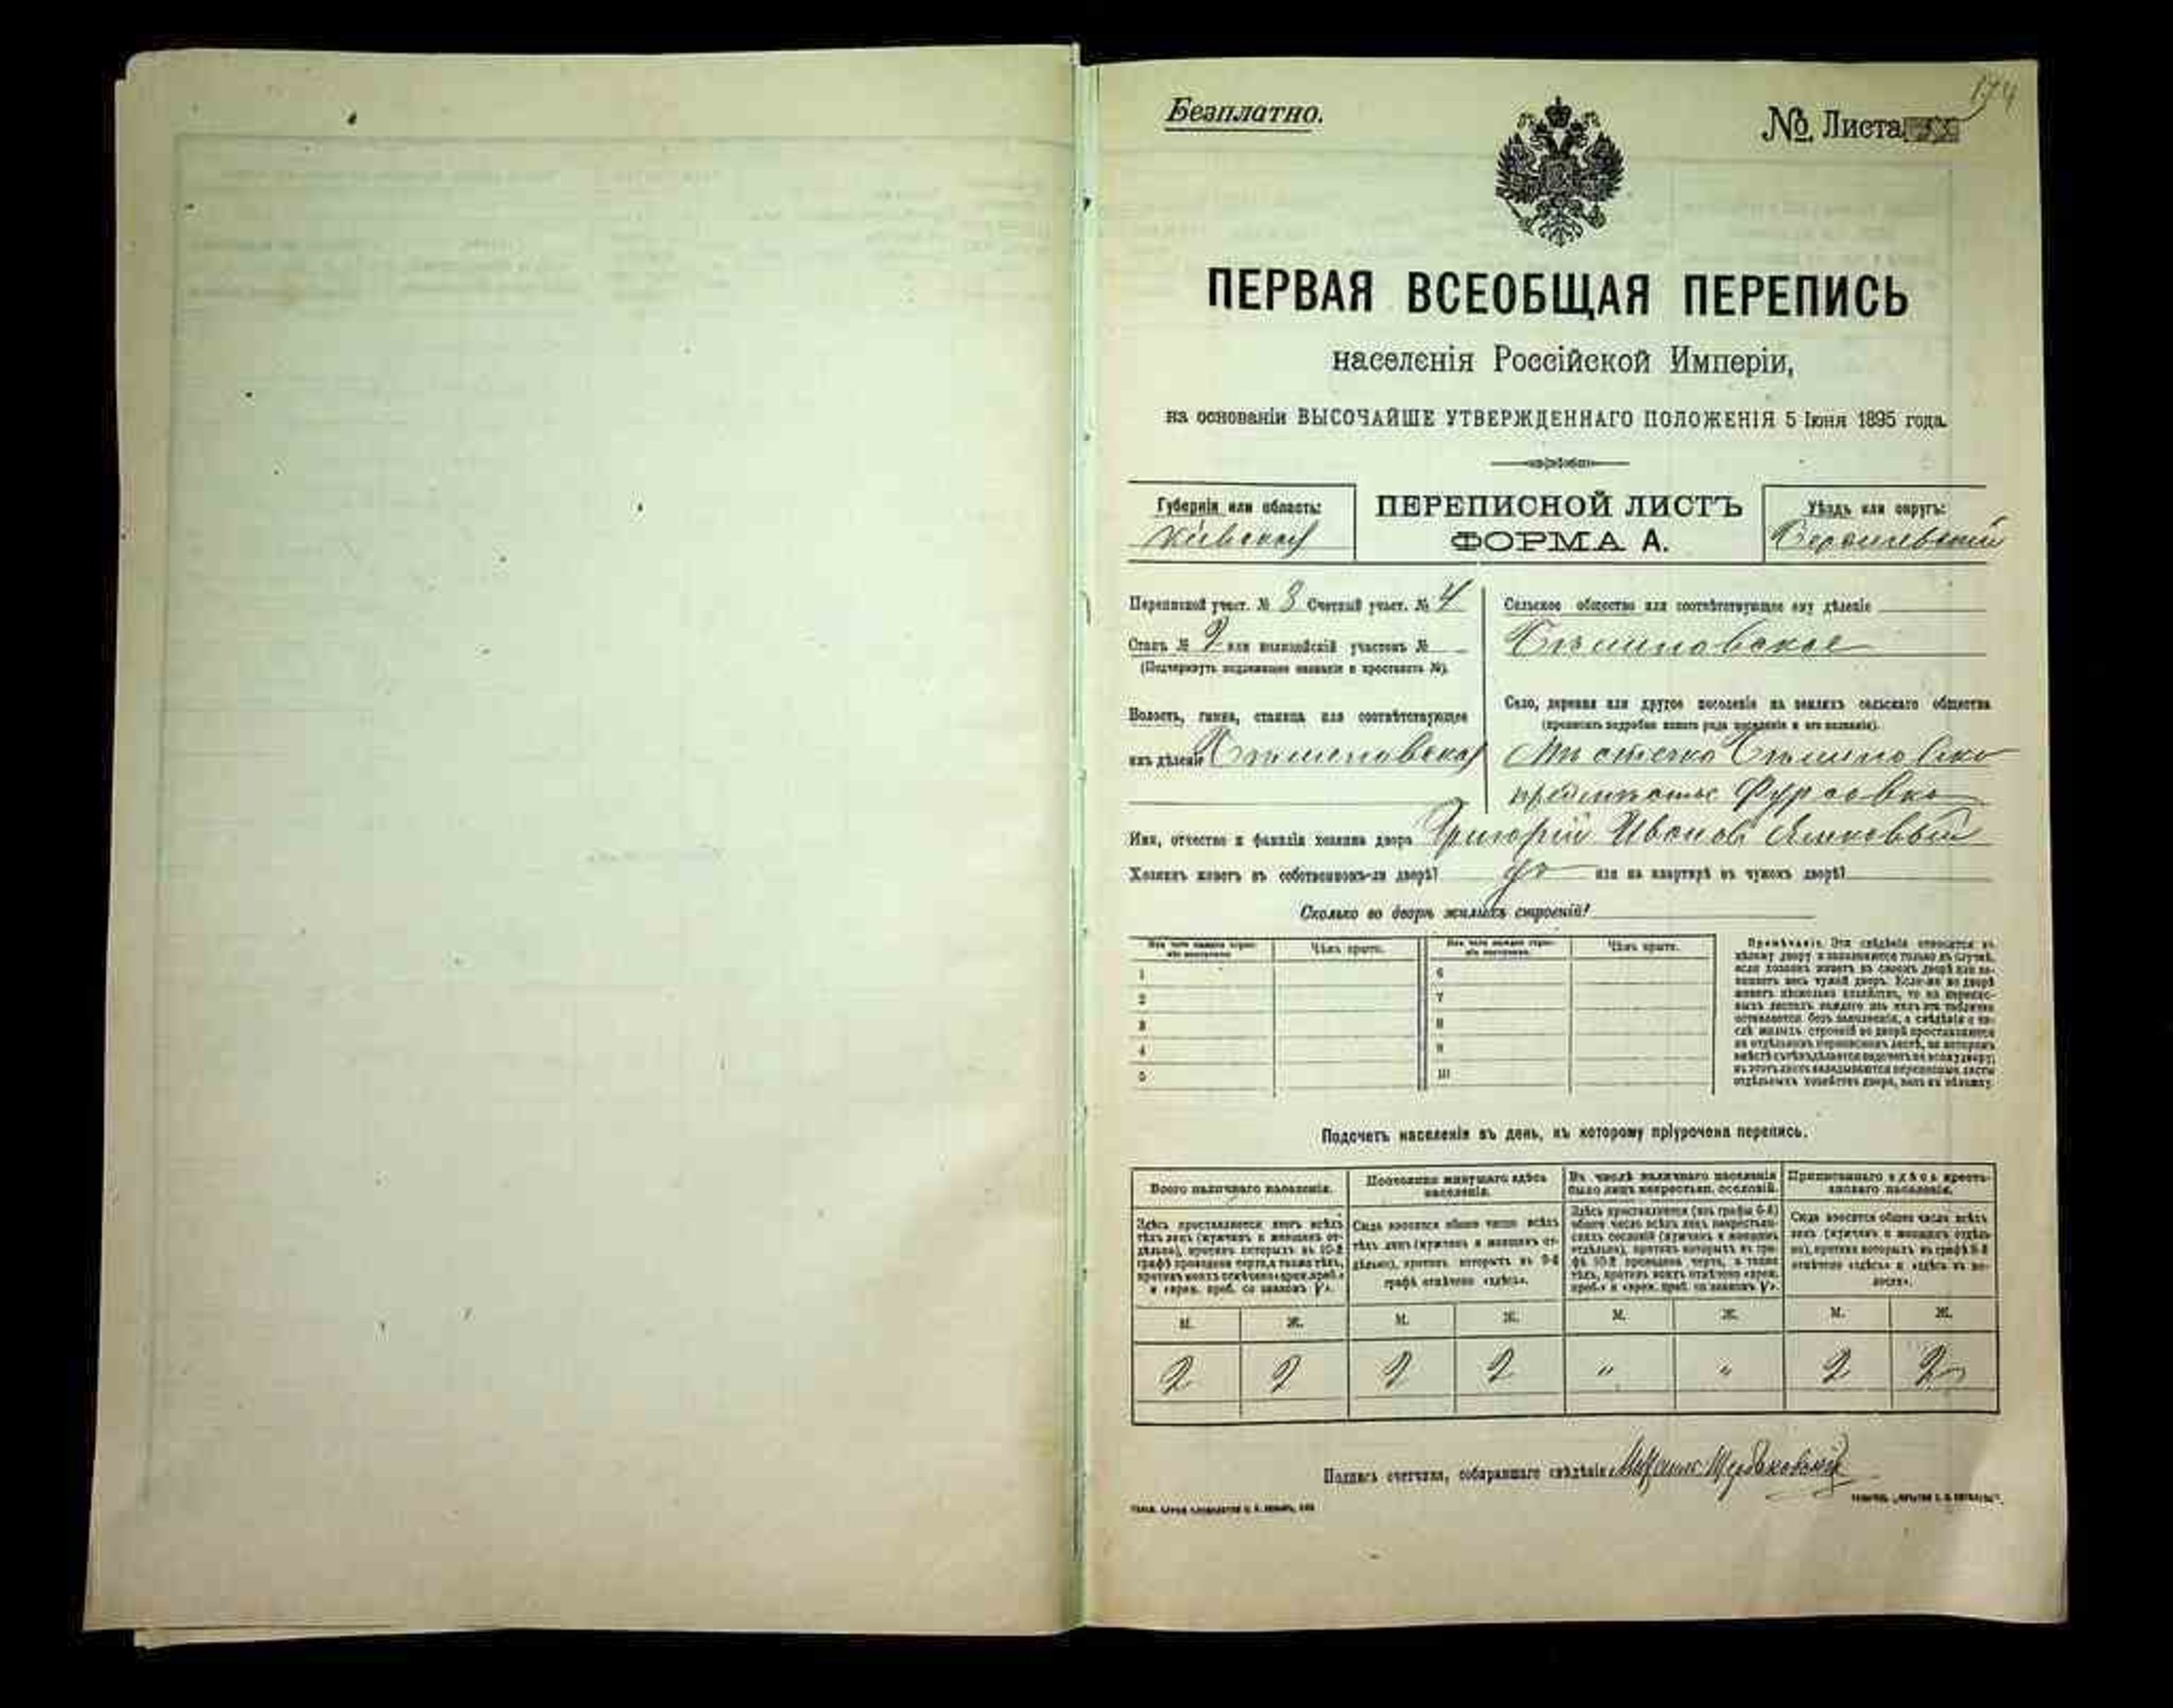 174
Безплатно.
№ Листа
ПЕРВАЯ ВСЕОБЩАЯ ПЕРЕПИСЬ
населенія Россійской Имперіи,
на основаніи ВЫСОЧАЙШЕ УТВЕРЖДЕННАГО ПОЛОЖЕНІЯ 5 Іюня 1895 года.
Губернія или область:
Кіевская
ПЕРЕПИСНОЙ ЛИСТЪ
ФОРМА А.
Уѣздъ или округъ:
Переписной участ. № 3 Счетный участ. № 4
Сельское общество или соотвѣтствующее ему дѣленіе
Станъ № 2 или полицейскій участокъ №
(Подчеркнуть подлежащее названіе и проставить №).
Волость, гмина, станица или соотвѣтствующее
имъ дѣленіе
Село, деревня или другое поселеніе на земляхъ сельскаго общества
(прописать подробно какого рода поселеніе и его названіе).
Мѣстечко
предмѣстье Фурсовка
Имя, отчество и фамилія хозяина двора Григорій Ивановъ
Хозяинъ живетъ въ собственномъ-ли дворѣ? да или на квартирѣ въ чужомъ дворѣ?
Сколько во дворѣ жилыхъ строеній?
Изъ чего каждое строе-
ніе построено.
Чѣмъ крыто.
Изъ чего каждое строе-
ніе построено.
Чѣмъ крыто.
1 6
2 7
3 8
4 9
5 10
Примѣчаніе. Эти свѣдѣнія относятся къ
цѣлому двору и заполняются только въ случаѣ,
если хозяинъ живетъ въ своемъ дворѣ или за-
нимаетъ весь чужой дворъ. Если-же во дворѣ
живетъ нѣсколько хозяйствъ, то на перепис-
ныхъ листахъ каждаго изъ нихъ эта табличка
оставляется безъ заполненія, а свѣдѣнія о чи-
слѣ жилыхъ строеній во дворѣ проставляются
на отдѣльномъ переписномъ листѣ, на которомъ
вмѣстѣ съ тѣмъ дѣлается подсчетъ по всему двору;
въ этотъ листъ вкладываются переписные листы
отдѣльныхъ хозяйствъ двора, какъ въ обложку.
Подсчетъ населенія въ день, къ которому пріурочена перепись.
Всего наличнаго населенія.
Здѣсь проставляется итогъ всѣхъ
тѣхъ лицъ (мужчинъ и женщинъ от-
дѣльно), противъ которыхъ въ 10-й
графѣ проведена черта, а также тѣхъ,
противъ коихъ отмѣчено «врем. преб.»
и «врем. преб. со знакомъ V».
Постоянно живущаго здѣсь
населенія.
Сюда вносится общее число всѣхъ
тѣхъ лицъ (мужчинъ и женщинъ от-
дѣльно), противъ которыхъ въ 9-й
графѣ отмѣчено «здѣсь».
Въ числѣ наличнаго населенія
было лицъ некрестьян. сословій.
Здѣсь проставляется (изъ графы 6-й)
общее число всѣхъ лицъ некрестьян-
скихъ сословій (мужчинъ и женщинъ
отдѣльно), противъ которыхъ въ гра-
фѣ 10-й проведена черта, а также
тѣхъ, противъ коихъ отмѣчено «врем.
преб.» и «врем. преб. со знакомъ V».
Приписаннаго здѣсь кресть-
янскаго населенія.
Сюда вносится общее число всѣхъ
лицъ (мужчинъ и женщинъ отдѣль-
но), противъ которыхъ въ графѣ 8-й
отмѣчено «здѣсь» и «здѣсь въ во-
лости».
М. Ж. М. Ж. М. Ж. М. Ж.
2 2 2 2 " " 2 2
Подпись счетчика, собиравшаго свѣдѣнія